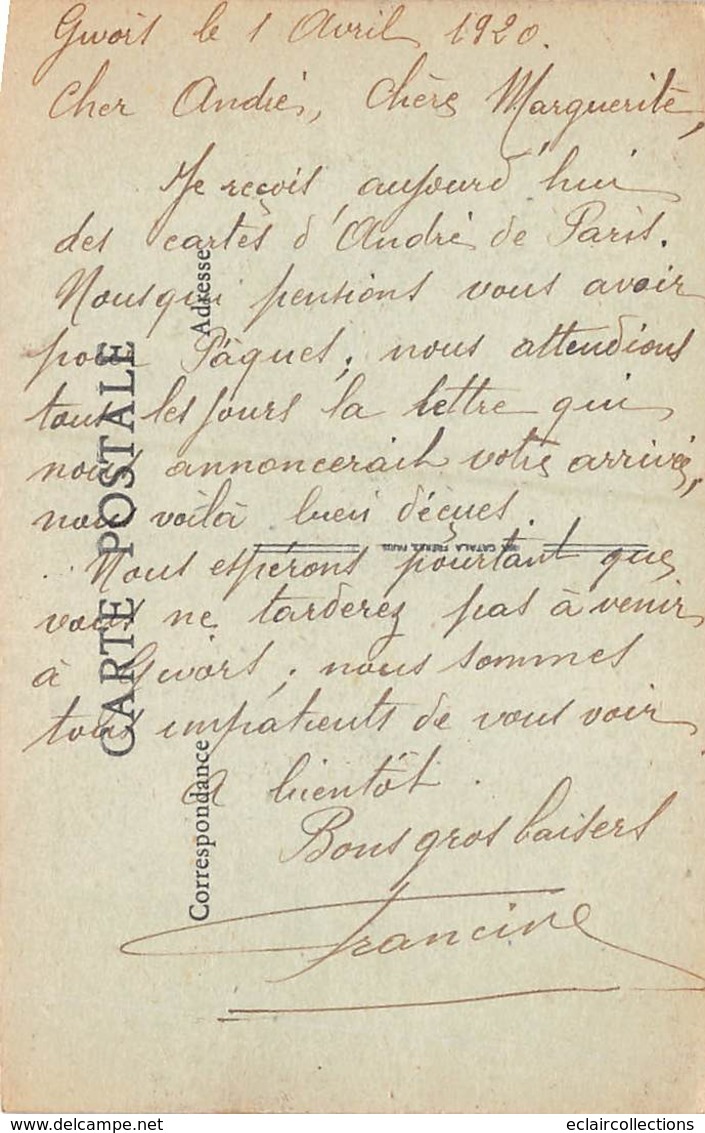 Givors le 1 Avril 1920.
Cher André, Chère Marguerite,
Je reçois aujourd'hui
des cartes d'André de Paris.
Nous qui pensions vous avoir
pour Pâques, nous attendions
tous les jours la lettre qui
nous annoncerait votre arrivée,
nous voilà bien déçues.
Nous espérons pourtant que
vous ne tarderez pas à venir
à Givors, nous sommes
tous impatients de vous voir
A bientôt.
Bons gros baisers
Francine
CARTE POSTALE
Correspondance
Adresse
CATALA FRÈRES, PARIS
eclaircollections